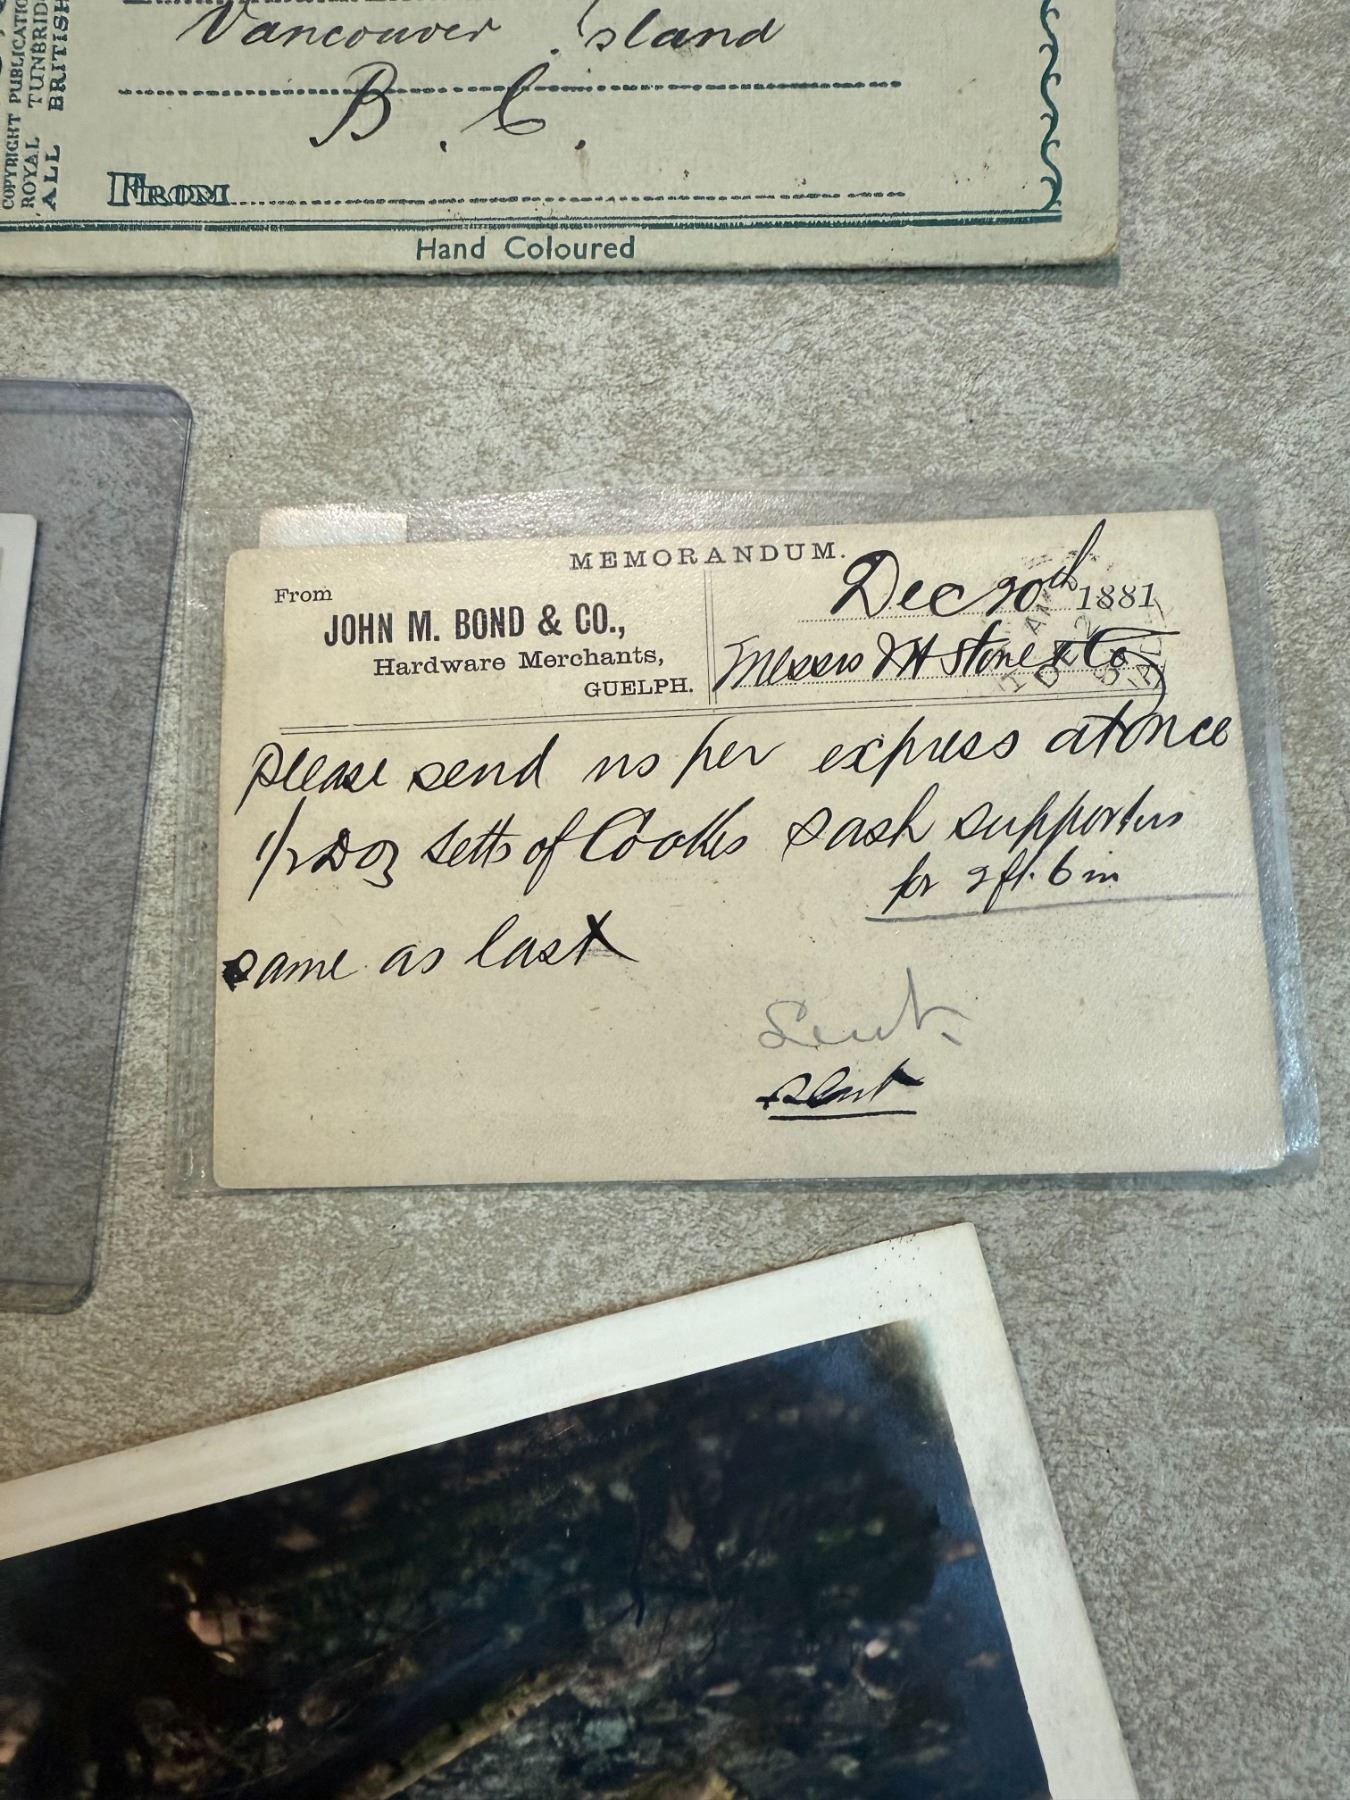 Vancouver Island
B. C.
FROM
Hand Coloured
COPYRIGHT PUBLICATIO
ROYAL TUNBRID
ALL BRITISH
MEMORANDUM.
From
JOHN M. BOND & CO.,
Hardware Merchants,
GUELPH.
Dec 20th 1881
Messrs Stone & Co
please send us per express at once
1/2 Doz setts of Cookes sash supporters
for 2 ft. 6 in
same as last
Sent
Sent